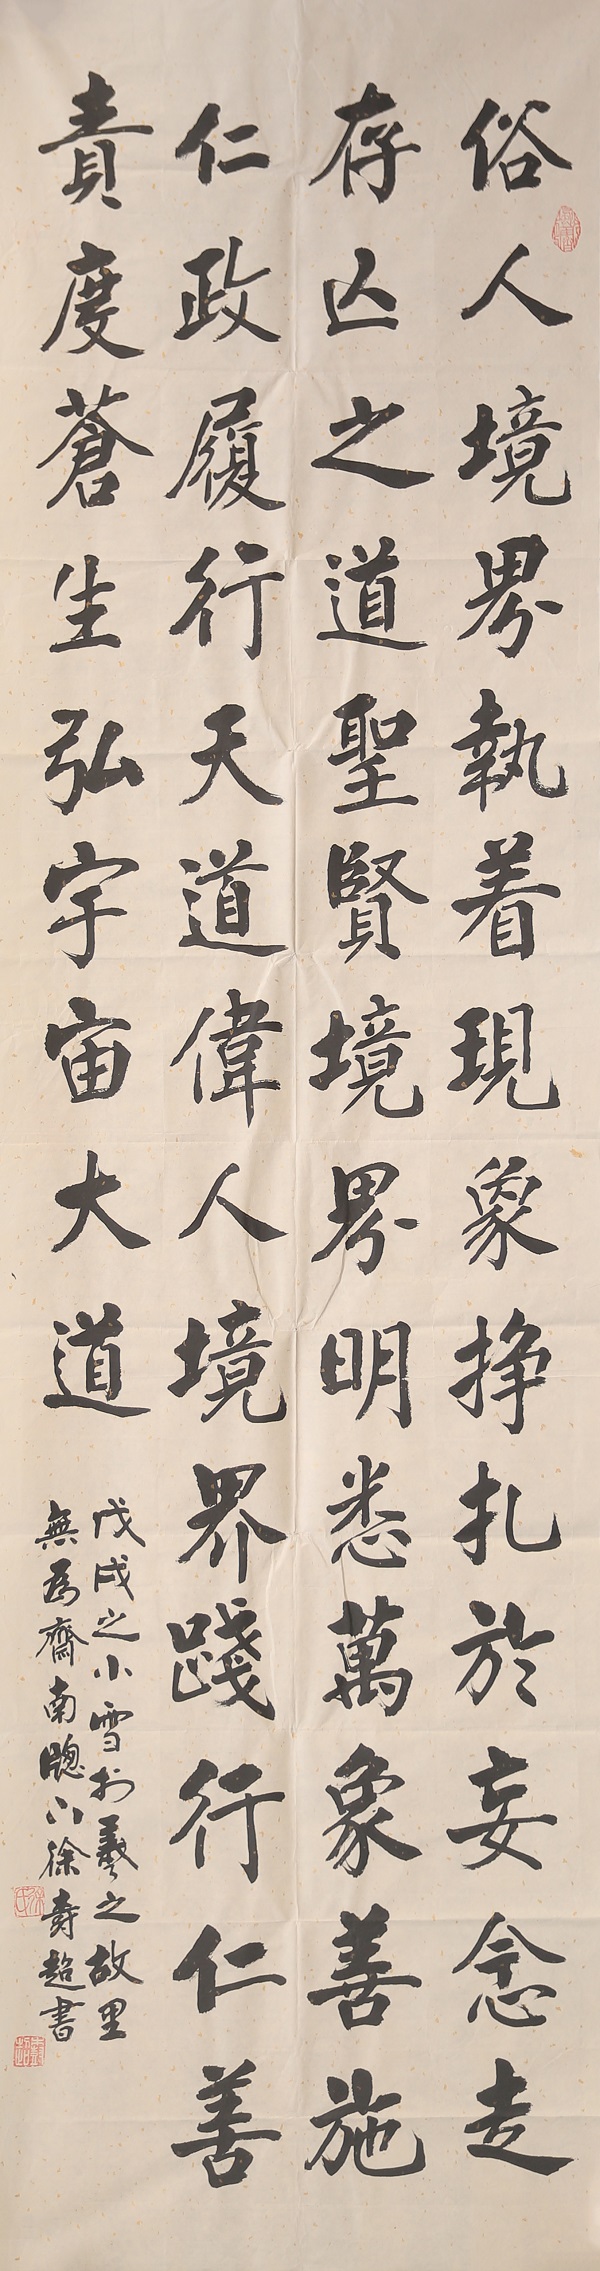 俗人境界執着現象挣扎於妄念走
存亾之道聖賢境界明悉萬象善施
仁政履行天道偉人境界踐行仁善
責度蒼生弘宇宙大道
戊戌之小雪於羲之故里
無為齋南牕下徐壽超書